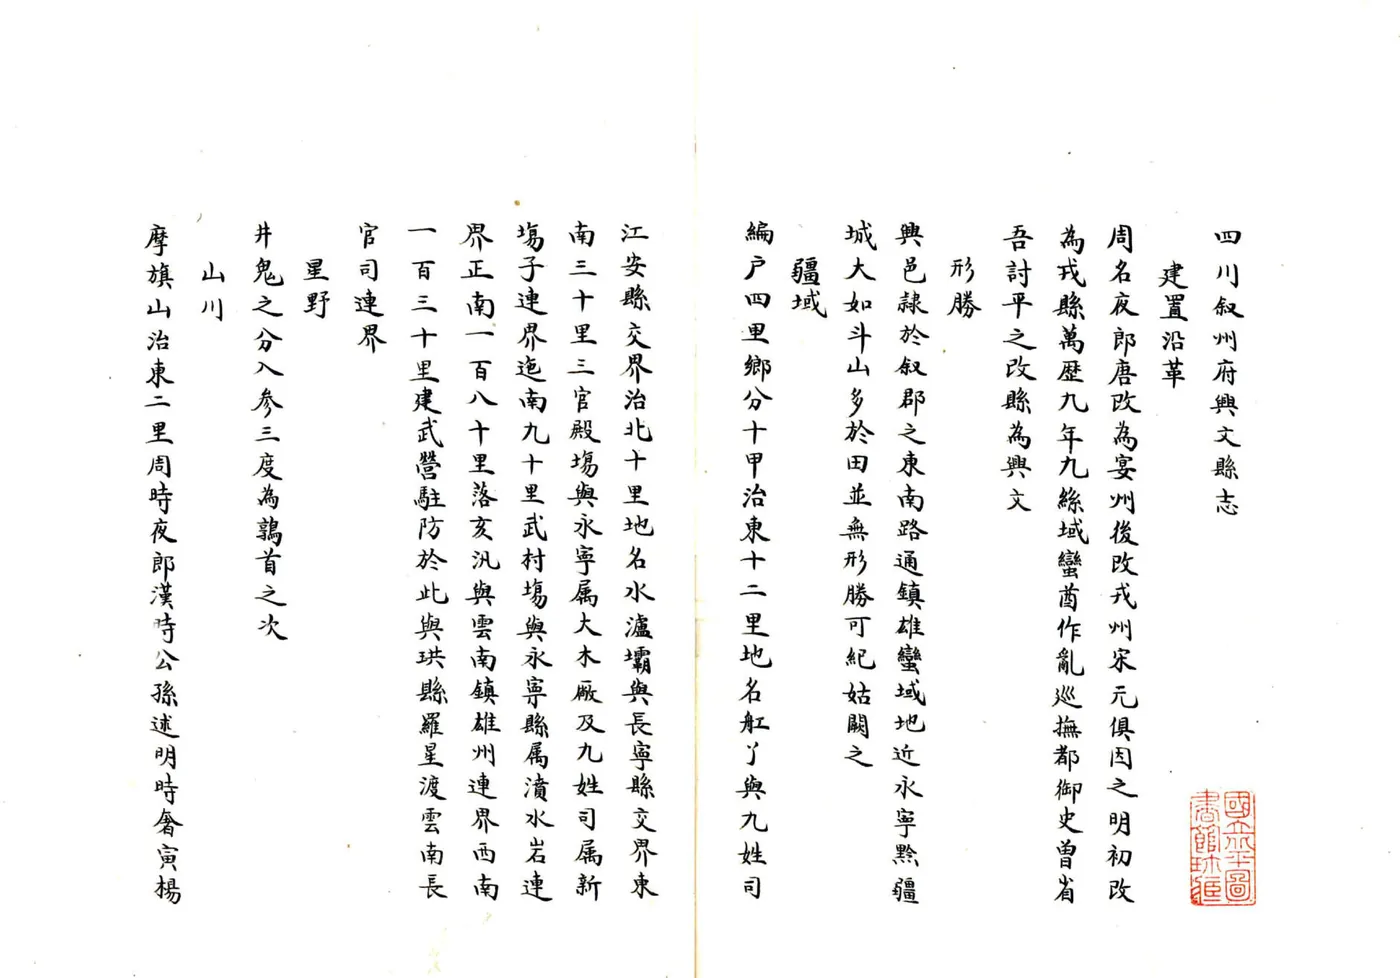 四川叙州府興文縣志
建置沿革
周名夜郎唐改為宴州後改戎州宋元俱因之明初改
為戎縣萬歷九年九絲域蠻酋作亂巡撫都御史曾省
吾討平之改縣為興文
形勝
興邑隷於叙郡之東南路通鎮雄蠻域地近永寧黔疆
城大如斗山多於田並無形勝可紀姑闕之
疆域
編户四里鄉分十甲治東十二里地名舡丫與九姓司
江安縣交界治北十里地名水瀘壩與長寧縣交界東
南三十里三官殿塲與永寧属大木厰及九姓司属新
塲子連界迤南九十里武村塲與永寧縣属濆水岩連
界正南一百八十里落亥汛與雲南鎮雄州連界西南
一百三十里建武營駐防於此與珙縣羅星渡雲南長
官司連界
星野
井鬼之分入參三度為鶉首之次
山川
摩旗山治東二里周時夜郎漢時公孫述明時奢寅楊
國立北平圖
書館珎藏